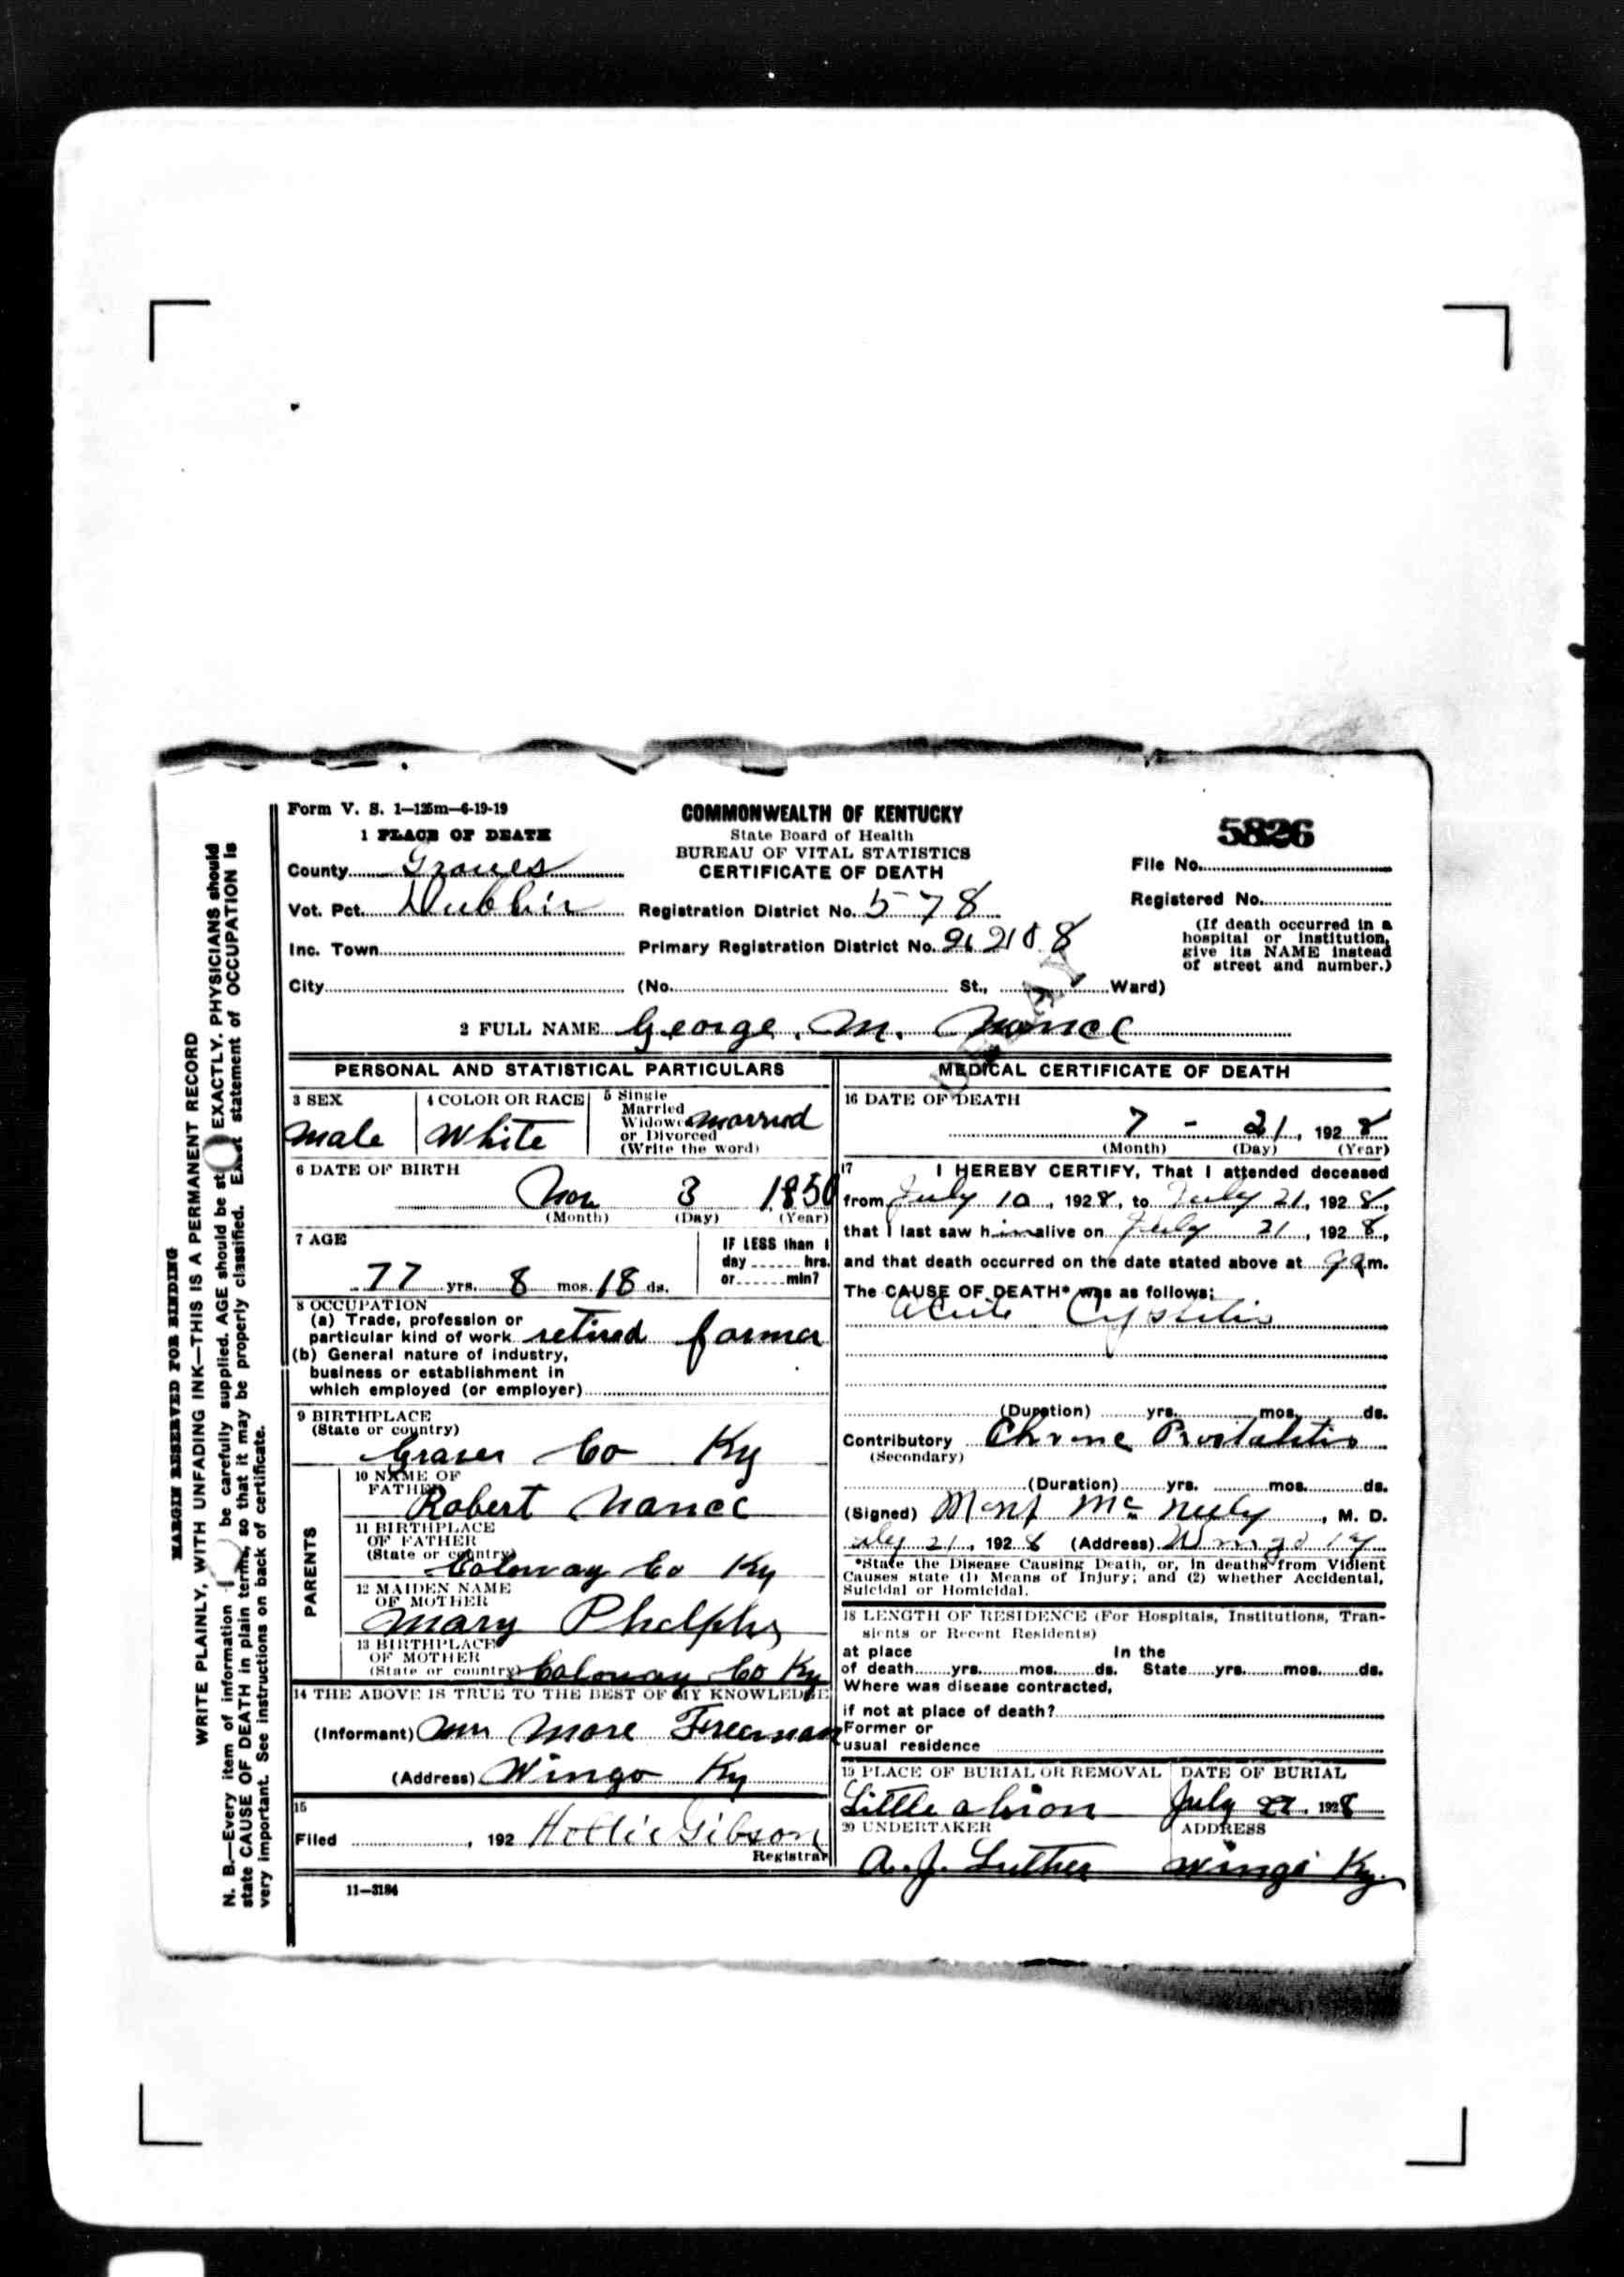 MARGIN RESERVED FOR BINDING
WRITE PLAINLY, WITH UNFADING INK—THIS IS A PERMANENT RECORD
N. B.—Every item of information be carefully supplied. AGE should be st EXACTLY. PHYSICIANS should
state CAUSE OF DEATH in plain terms, so that it may be properly classified. Exact statement of OCCUPATION is
very important. See instructions on back of certificate.
Form V. S. 1—125m—6-19-19
COMMONWEALTH OF KENTUCKY
State Board of Health
BUREAU OF VITAL STATISTICS
CERTIFICATE OF DEATH
5826
File No.
Registered No.
(If death occurred in a
hospital or institution,
give its NAME instead
of street and number.)
1 PLACE OF DEATH
County Graves
Vot. Pct. Dublin Registration District No. 578
Inc. Town Primary Registration District No.
City (No. St., Ward)
2 FULL NAME George. M. Nance
PERSONAL AND STATISTICAL PARTICULARS
3 SEX
male
4 COLOR OR RACE
White
5 Single
Married
Widowed married
or Divorced
(Write the word)
6 DATE OF BIRTH
Nov 3 1850
(Month) (Day) (Year)
7 AGE
77 yrs. 8 mos. 18 ds.
IF LESS than 1
day hrs.
or min?
8 OCCUPATION
(a) Trade, profession or
particular kind of work retired farmer
(b) General nature of industry,
business or establishment in
which employed (or employer)
9 BIRTHPLACE
(State or country)
Graves Co Ky
PARENTS
10 NAME OF
FATHER
Robert Nance
11 BIRTHPLACE
OF FATHER
(State or country)
Caloway Co Ky
12 MAIDEN NAME
OF MOTHER
Mary Phelphs
13 BIRTHPLACE
OF MOTHER
(State or country) Caloway Co Ky
14 THE ABOVE IS TRUE TO THE BEST OF MY KNOWLEDGE
(Informant) More Freeman
(Address) Wingo Ky
15
Filed , 192 Hollie Gibson
Registrar
11—3184
MEDICAL CERTIFICATE OF DEATH
16 DATE OF DEATH
7 - 21, 1928
(Month) (Day) (Year)
17 I HEREBY CERTIFY, That I attended deceased
from July 10, 1928, to July 21, 1928,
that I last saw him alive on July 21, 1928,
and that death occurred on the date stated above at 9 a m.
The CAUSE OF DEATH* was as follows:
Acute Cystitis
(Duration) yrs. mos. ds.
Contributory Chronic Prostatitis
(Secondary)
(Duration) yrs. mos. ds.
(Signed) Mc Neely, M. D.
July 21, 1928 (Address) Wingo Ky
*State the Disease Causing Death, or, in deaths from Violent
Causes state (1) Means of Injury; and (2) whether Accidental,
Suicidal or Homicidal.
18 LENGTH OF RESIDENCE (For Hospitals, Institutions, Tran-
sients or Recent Residents)
at place In the
of death yrs. mos. ds. State yrs. mos. ds.
Where was disease contracted,
if not at place of death?
Former or
usual residence
19 PLACE OF BURIAL OR REMOVAL DATE OF BURIAL
Little July 22, 1928
20 UNDERTAKER ADDRESS
A. J. Luther Wingo Ky.